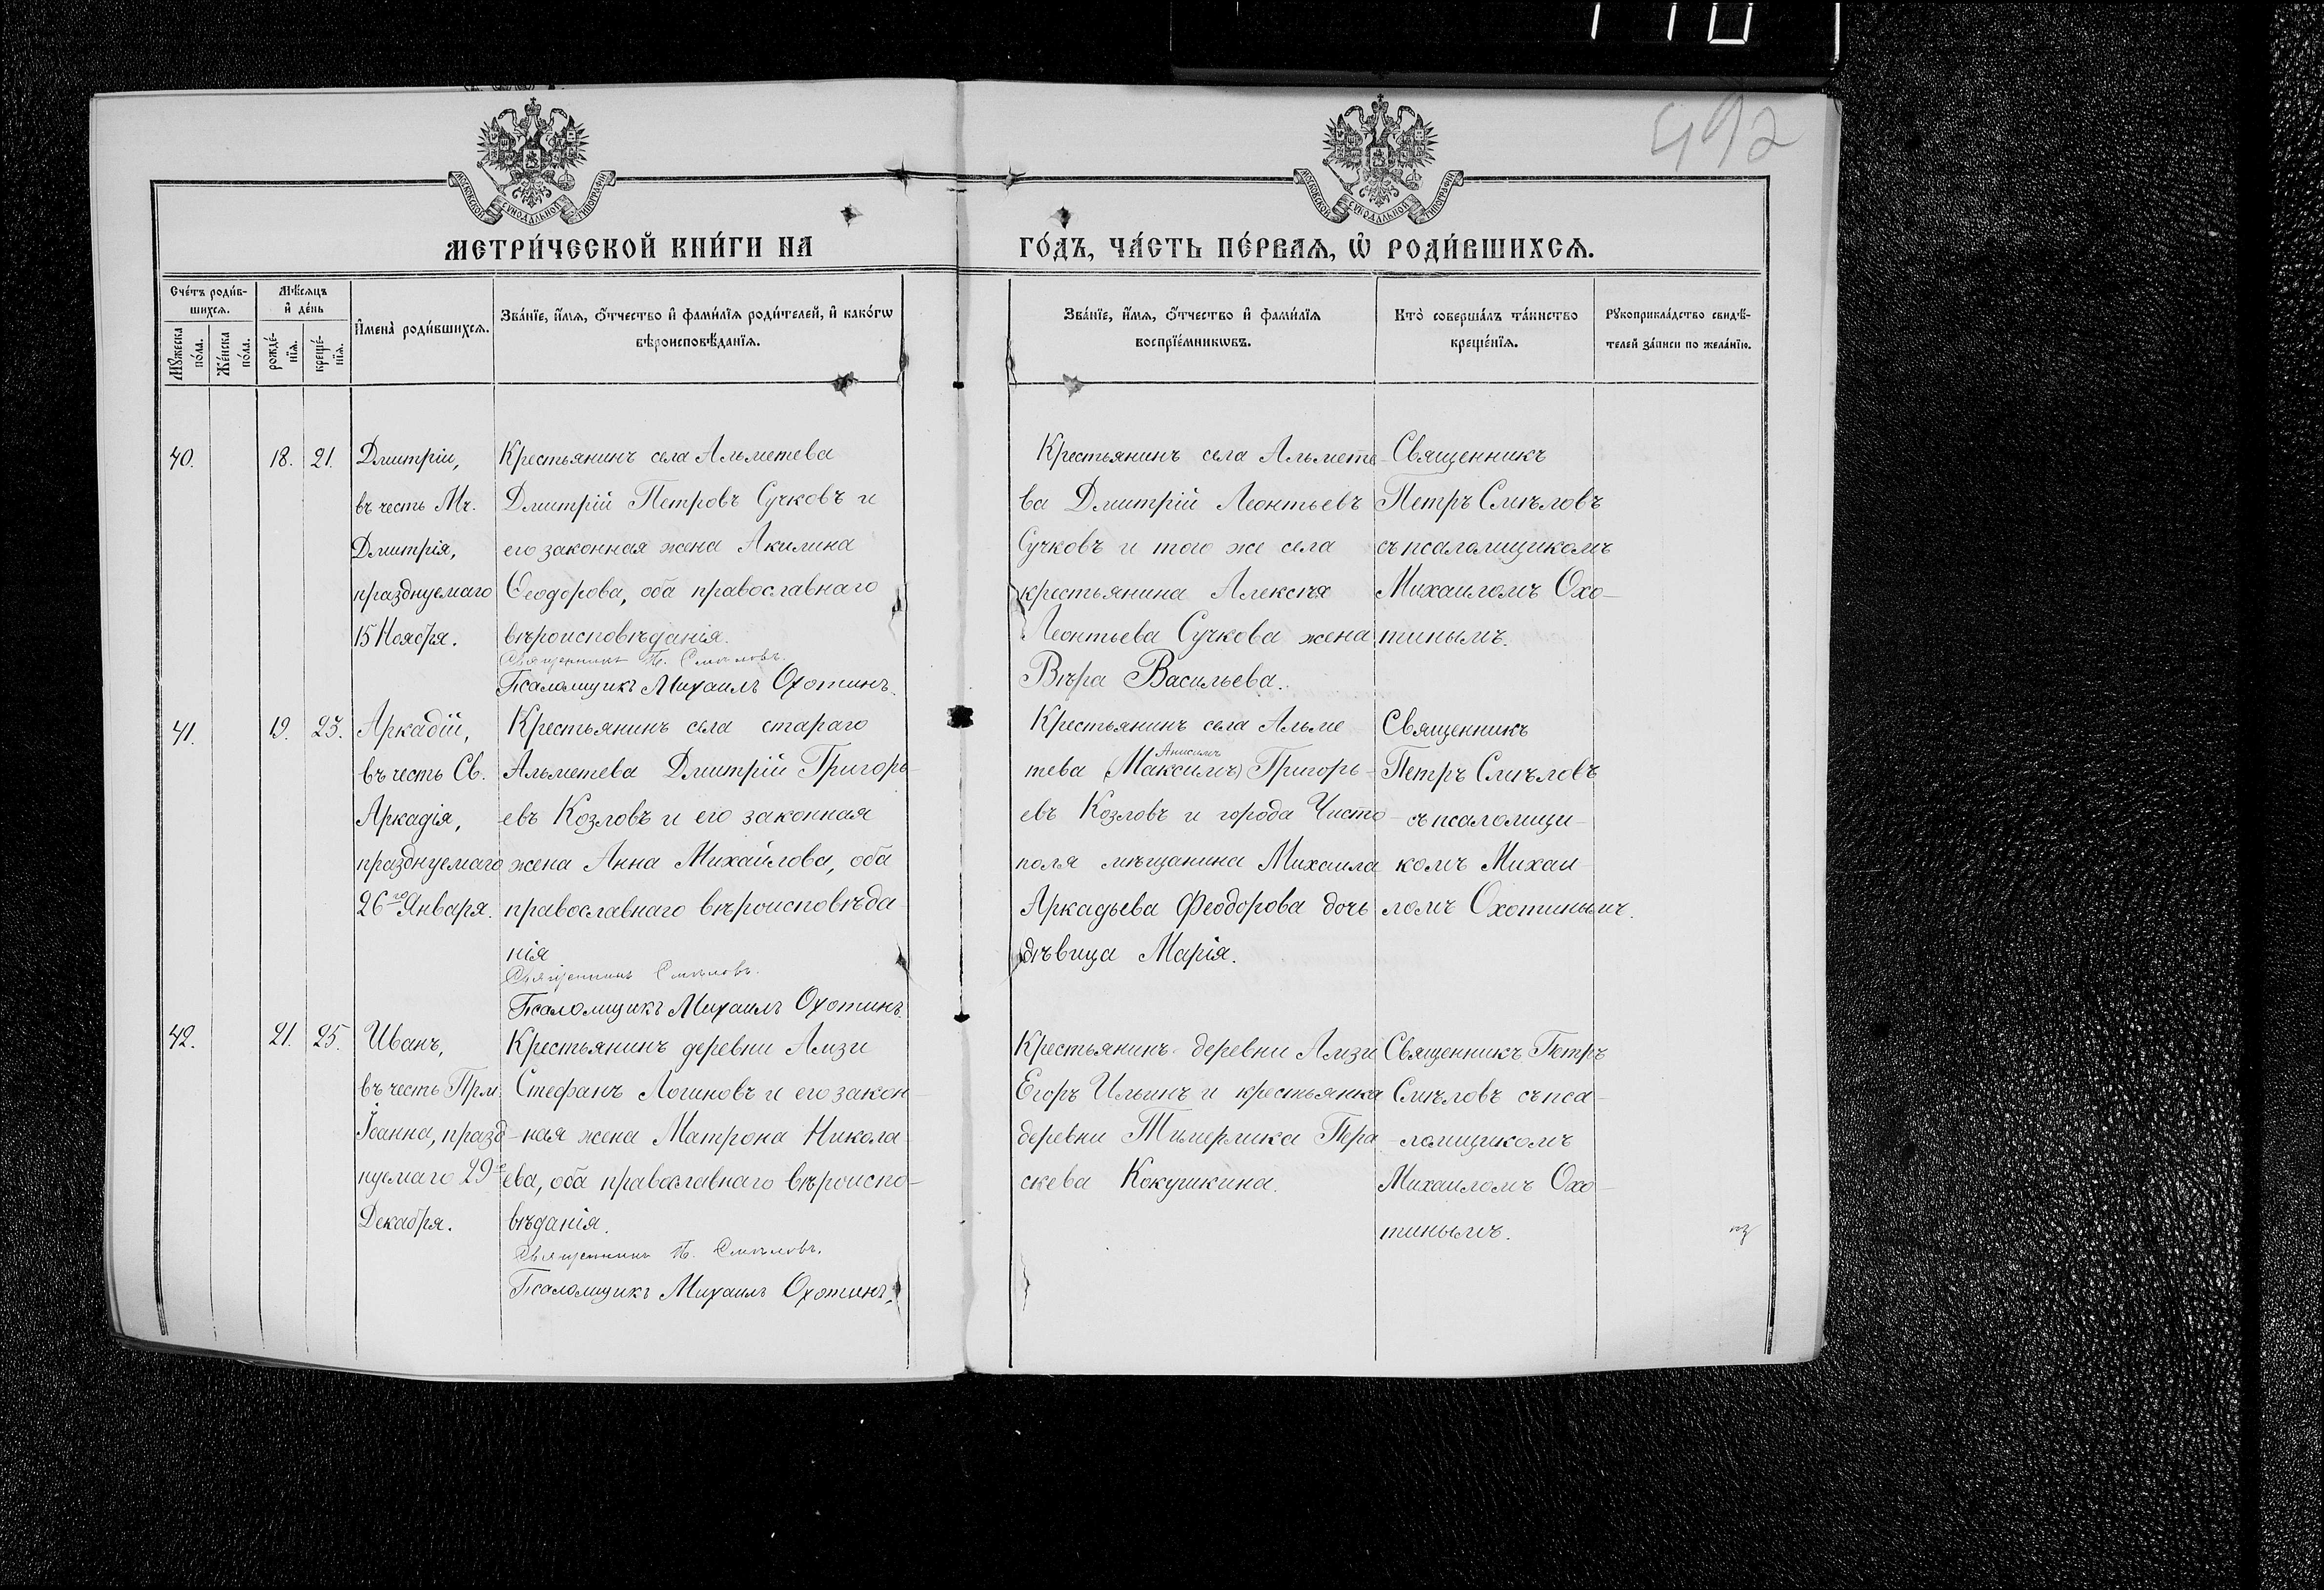 110
492
МОСКОВСКОЙ СѴНОДАЛЬНОЙ ТИПОГРАФІИ
МОСКОВСКОЙ СѴНОДАЛЬНОЙ ТИПОГРАФІИ
МЕТРИ́ЧЕСКОЙ КНИ́ГИ НА
ГО́ДЪ, ЧА́СТЬ ПЕ́РВАѦ, Ѡ҆ РОДИ́ВШИХСѦ.
Сче́тъ роди́в-
шихсѧ.
Мꙋ́жеска
по́ла.
Же́нска
по́ла.
Мѣ́сѧцъ
и҆ де́нь
рожде́-
нїѧ.
креще́-
нїѧ.
И҆мена̀ роди́вшихсѧ.
Зва́нїе, и҆́мѧ, ѻ҆́тчество и҆ фами́лїѧ роди́телей, и҆ како́гѡ
вѣроисповѣ́данїѧ.
Зва́нїе, и҆́мѧ, ѻ҆́тчество и҆ фами́лїѧ
воспрїе́мникѡвъ.
Кто̀ соверша́лъ та́инство
креще́нїѧ.
Рꙋкоприкла́дство свидѣ́-
телей за́писи по жела́нїю.
40.
18.
21.
Дмитрій,
въ честь Мч.
Дмитрія,
празднуемаго
15 Ноября.
Крестьянинъ села Альметева
Дмитрій Петровъ Сучковъ и
его законная жена Акилина
Ѳеодорова, оба православнаго
вѣроисповѣданія.
Священникъ П. Смѣловъ.
Псаломщикъ Михаилъ Охотинъ.
Крестьянинъ села Альмете
ва Дмитрій Леонтьевъ
Сучковъ и того же села
крестьянина Алексѣя
Леонтьева Сучкова жена
Вѣра Васильева.
Священникъ
Петръ Смѣловъ
съ псаломщикомъ
Михаиломъ Охо-
тинымъ.
41.
19.
23.
Аркадій,
въ честь Св.
Аркадія,
празднуемаго
26го Января.
Крестьянинъ села стараго
Альметева Дмитрій Григорь-
евъ Козловъ и его законная
жена Анна Михайлова, оба
православнаго вѣроисповѣда
нія
Священникъ Смѣловъ.
Псаломщикъ Михаилъ Охотинъ.
Крестьянинъ села Альме
Анисимъ
тева (Максимъ) Григорь-
евъ Козловъ и города Чисто-
поля мѣщанина Михаила
Аркадьева Феодорова дочь
дѣвица Марія.
Священникъ
Петръ Смѣловъ
съ псаломщи-
комъ Михаи-
ломъ Охотинымъ.
42.
21.
25.
Иванъ,
въ честь Прм.
Іоанна, празд-
нуемаго 29го
Декабря.
Крестьянинъ деревни Амзи
Стефанъ Логиновъ и его закон-
ная жена Матрона Никола
ева, оба православнаго вѣроиспо-
вѣданія.
Священникъ П. Смѣловъ.
Псаломщикъ Михаилъ Охотинъ.
Крестьянинъ деревни Амзи
Егоръ Ильинъ и крестьянка
деревни Тимерлика Пера-
скева Кокушкина.
Священникъ Петръ
Смѣловъ съ пса-
ломщикомъ
Михаиломъ Охо-
тинымъ.